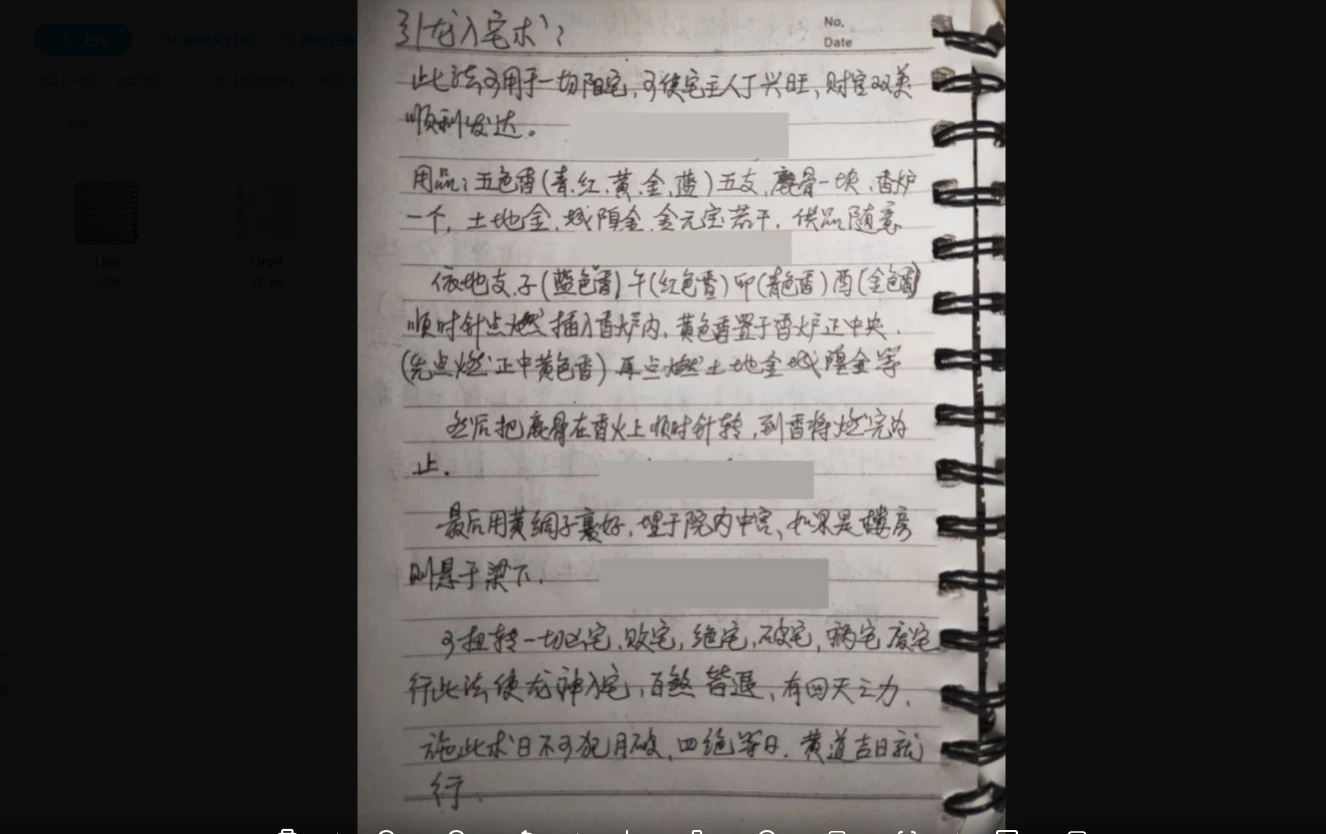 引龙入宅术：
No.
Date
此法可用于一切阳宅，可使宅主人丁兴旺、财官双美
顺利发达。
用品：五色香（青、红、黄、金、蓝）五支、鹿骨一块、香炉
一个，土地金、城隍金、金元宝若干，供品随意
依地支，子（蓝色香）午（红色香）卯（青色香）酉（金色香）
顺时针点燃插入香炉内，黄色香置于香炉正中央，
（先点燃正中黄色香）再点燃土地金城隍金等
然后把鹿骨在香火上顺时针转，到香将燃完为
止。
最后用黄绸子裹好，埋于院内中宫、如果是楼房
则悬于梁下，
可扭转一切凶宅、败宅，绝宅，破宅，病宅废宅
行此法使龙神入宅，百煞皆退、有回天之力、
施此术日不可犯月破、四绝等日、黄道吉日就
行.
1.jpg
1.mp4